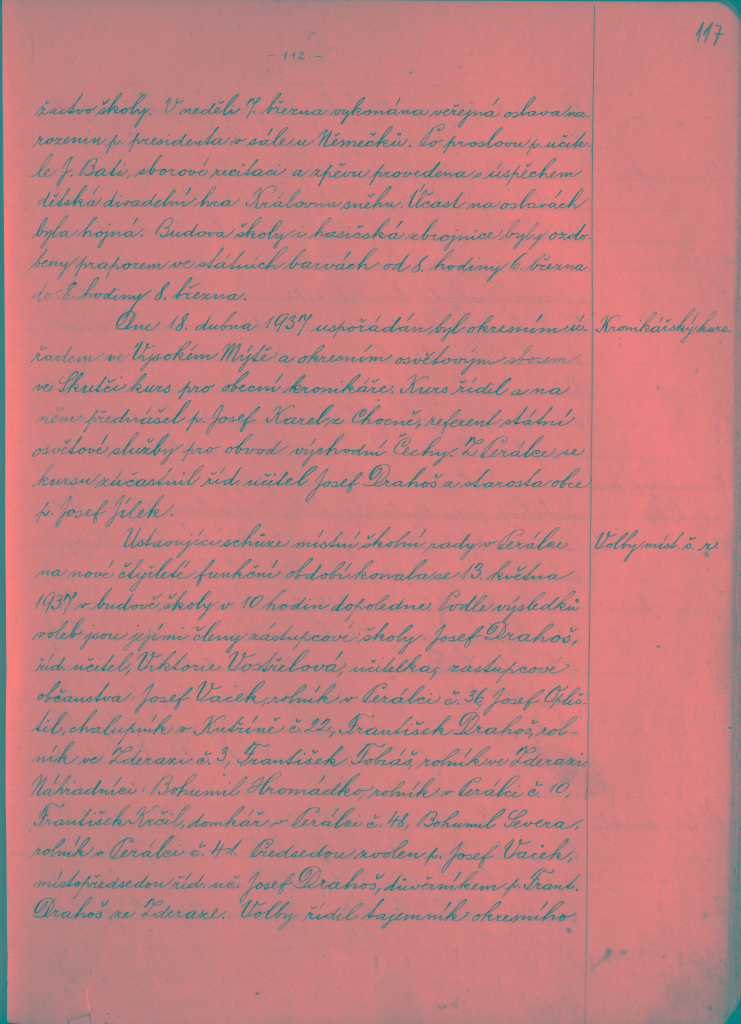 117
- 112 -
žactvo školy. V neděli 7. března vykonána veřejná oslava na-
rozenin p. presidenta v sále u Němečků. Po proslovu p. učite-
le J. Bati, sborové recitaci a zpěvu provedena s úspěchem
dětská divadelní hra Královna sněhu. Účast na oslavách
byla hojná. Budova školy i hasičská zbrojnice byly ozdo-
beny praporem ve státních barvách od 8. hodiny 6. března
do 8. hodiny 8. března.
Dne 18. dubna 1937 uspořádán byl okresním ú-
Kronikářský kurs.
řadem ve Vysokém Mýtě a okresním osvětovým sborem
ve Skutči kurs pro obecní kronikáře. Kurs řídil a na
něm přednášel p. Josef Karel z Chocně, referent státní
osvětové služby pro obvod východní Čechy. Z Perálce se
kursu zúčastnil říd. učitel Josef Drahoš a starosta obce
p. Josef Jílek.
Ustavující schůze místní školní rady v Perálce
Volby míst. š. r.
na nové čtyřleté funkční období konala se 13. května
1937 v budově školy v 10 hodin dopoledne. Podle výsledků
voleb jsou jejími členy zástupcové školy: Josef Drahoš,
říd. učitel, Viktorie Vostřelová, učitelka; zástupcové
občanstva: Josef Vacek, rolník v Perálci č. 36, Josef Opliš-
til, chalupník v Kutříně č. 22, František Drahoš, rol-
ník ve Zderazi č. 3, František Tobiáš, rolník ve Zderazi.
Náhradníci: Bohumil Hromádko, rolník v Perálci č. 10,
František Krčil, domkář v Perálci č. 48, Bohumil Severa,
rolník v Perálci č. 41. Předsedou zvolen p. Josef Vacek,
místopředsedou říd. uč. Josef Drahoš, důvěrníkem p. Frant.
Drahoš ze Zderaze. Volby řídil tajemník okresního